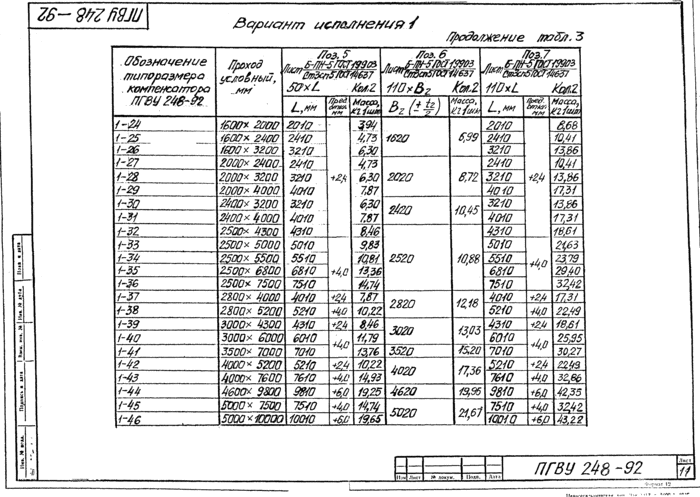 ПГВУ 248-92
Вариант исполнения 1
Продолжение табл. 3
Обозначение типоразмера компенсатора ПГВУ 248-92 | Проход условный, мм | Поз. 5 Лист Б-ПН-5 ГОСТ 19903 Ст3сп5 ГОСТ 14637 50×L Кол. 2 | Поз. 6 Лист Б-ПН-5 ГОСТ 19903 Ст3сп5 ГОСТ 14637 110×B2 Кол. 2 | Поз. 7 Лист Б-ПН-5 ГОСТ 19903 Ст3сп5 ГОСТ 14637 110×L Кол. 2
L, мм | Пред. откл. мм | Масса, кг 1 шт | B2 (± t2/2) | Масса, кг 1 шт | L, мм | Пред. откл. мм | Масса, кг 1 шт
1-24 1600×2000 2010 3,94 2010 8,68
1-25 1600×2400 2410 4,73 1620 6,99 2410 10,41
1-26 1600×3200 3210 6,30 3210 13,86
1-27 2000×2400 2410 4,73 2410 10,41
1-28 2000×3200 3210 +2,4 6,30 2020 8,72 3210 +2,4 13,86
1-29 2000×4000 4010 7,87 4010 17,31
1-30 2400×3200 3210 6,30 2420 10,45 3210 13,86
1-31 2400×4000 4010 7,87 4010 17,31
1-32 2500×4300 4310 8,46 4310 18,61
1-33 2500×5000 5010 9,83 5010 21,63
1-34 2500×5500 5510 10,81 2520 10,88 5510 +4,0 23,79
1-35 2500×6800 6810 +4,0 13,36 6810 29,40
1-36 2500×7500 7510 14,74 7510 32,42
1-37 2800×4000 4010 +2,4 7,87 2820 12,18 4010 +2,4 17,31
1-38 2800×5200 5210 +4,0 10,22 5210 +4,0 22,49
1-39 3000×4300 4310 +2,4 8,46 3020 13,03 4310 +2,4 18,61
1-40 3000×6000 6010 +4,0 11,79 6010 +4,0 25,95
1-41 3500×7000 7010 13,76 3520 15,20 7010 30,27
1-42 4000×5200 5210 +2,4 10,22 4020 17,36 5210 +2,4 22,49
1-43 4000×7600 7610 +4,0 14,93 7610 +4,0 32,86
1-44 4600×9800 9810 +6,0 19,25 4620 19,95 9810 +6,0 42,35
1-45 5000×7500 7510 +4,0 14,74 5020 21,67 7510 +4,0 32,42
1-46 5000×10000 10010 +6,0 19,65 10010 +6,0 43,22
Изм Лист № докум. Подп. Дата
ПГВУ 248-92
Лист
11